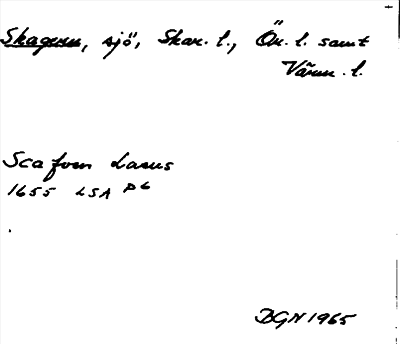 Skagern, sjö, Skar. l., Ör. l. samt
Värm. l.
Scafvern Lacus
1655 LSA D6
DGN 1965